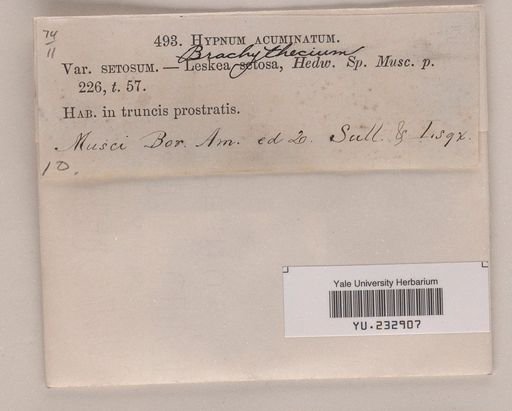 74
11
493. HYPNUM ACUMINATUM.
Brachythecium
VAR. SETOSUM. — Leskea setosa, Hedw. Sp. Musc. p.
226, t. 57.
HAB. in truncis prostratis.
Musci Bor. Am. ed 2o. Sull. & Lsqx.
10.
Yale University Herbarium
YU.232907